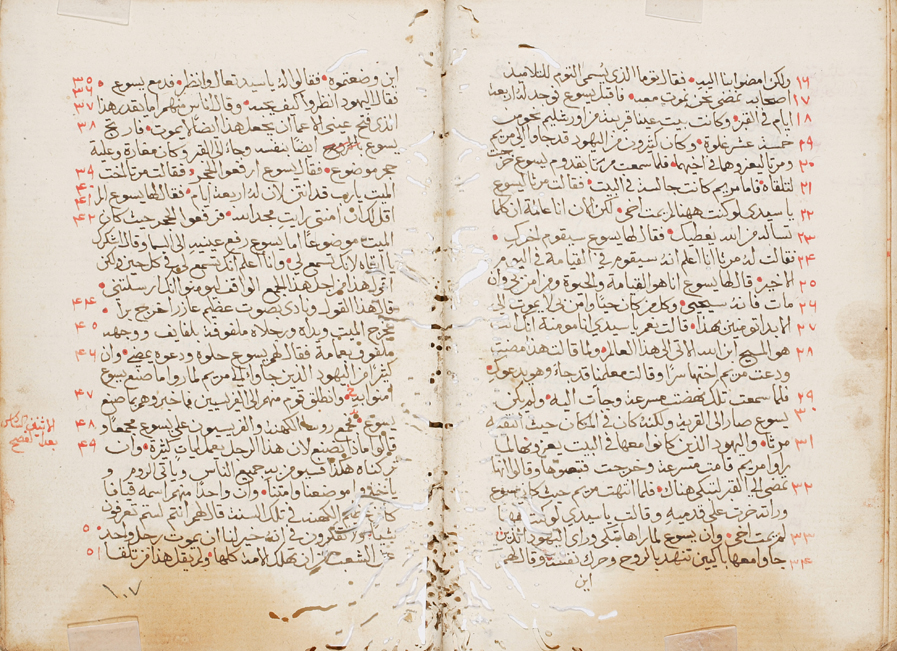 ١٦ ولكن امضوا بنا اليه • فقال توما الذي يسمى التوم للتلاميذ
١٧ اصحابه نمضي نحن نموت معه • فاقبل يسوع فوجد له اربعة
١٨ ايام في القبر • وكانت بيت عنيا قريبة من اورشليم نحو من
١٩ خمسة عشر غلوة • وكان كثيرون من اليهود قد جاوا الى مريم
٢٠ ومرتا ليعزوهما في اخيهما • فلما سمعت مرتا بقدوم يسوع خرجت
٢١ لتلقاه فاما مريم كانت جالسة في البيت • فقالت مرتا ليسوع
٢٢ يا سيدي لو كنت ههنا لم يمت اخي • لكن الان انا عالمة ان كلما
٢٣ تسال من الله يعطيك • فقال لها يسوع سيقوم اخوك •
٢٤ قالت له مرتا انا اعلم انه سيقوم في القيامة في اليوم
٢٥ الاخير • قال لها يسوع انا هو القيامة والحيوة ومن امن بي وان
٢٦ مات فانه سيحيى • وكل من كان حيا وامن بي لا يموت الى
٢٧ الابد اتومنين بهذا • قالت نعم يا سيدي انا مومنة انك انت
٢٨ هو المسيح ابن الله الاتي الى هذا العالم • ولما قالت هذا مضت
ودعت مريم اختها سرا وقالت معلمنا قد جاء وهو يدعوك •
٢٩ فلما سمعت تلك نهضت مسرعة وجات اليه • ولم يكن
٣٠ يسوع صار الى القرية ولكنه كان في المكان حيث التقته
٣١ مرتا • واليهود الذين كانوا معها في البيت يعزونها لما
راوا مريم قامت مسرعة وخرجت تبعوها وقالوا انها
٣٢ تمضي الى القبر لتبكي هناك • فلما انتهت مريم حيث كان يسوع
وراته خرت على قدميه وقالت يا سيدي لو كنت ههنا
٣٣ لم يمت اخي • وان يسوع لما راها تبكي وراى اليهود الذين
٣٤ جاوا معها باكيين تنهد بالروح وحرك نفسه • وقال لهم
اين
٣٥ اين وضعتموه • فقالوا له يا سيد تعال وانظر • فدمع يسوع •
٣٦ فقال اليهود انظروا كيف يحبه •
٣٧ وقال الناس منهم اما يقدر هذا
الذي فتح عيني الاعما ان يجعل هذا ايضا لا يموت •
٣٨ يسوع ايضا بنفسه وجاء الى القبر وكان مغارة وعليه
٣٩ حجر موضوع • فقال يسوع ارفعوا الحجر • فقالت مرتا اخت
٤٠ الميت يا رب قد انتن لان له اربعة ايام • فقال لها يسوع الم
٤١ اقل لك ان امنتي رايت مجد الله • فرفعوا الحجر حيث كان
٤٢ الميت موضوعا اما يسوع رفع عينيه الى السما وقال اشكرك
يا ابتاه لانك تسمع لي • وانا اعلم انك تسمع لي في كل حين ولكن
اقول هذا من اجل هذا الجمع الواقف ليومنوا انك ارسلتني •
٤٣ قال هذا القول ونادى بصوت عظيم عازر اخرج برا •
٤٤ فخرج الميت ويداه ورجلاه ملفوفة بلفايف ووجهه
٤٥ ملفوف بعمامة فقال لهم يسوع حلوه ودعوه يمضي • وان
كثيرا من اليهود الذين جاوا الى مريم لما راوا ما صنع يسوع
٤٦ امنوا به • وانطلق قوم منهم الى الفريسيين فاخبروهم بما صنع
٤٧ يسوع • فجمع روسا الكهنة والفريسيون على يسوع مجمعا و
٤٨ قالوا ماذا نصنع لان هذا الرجل يعمل ايات كثيرة • وان
تركناه هكذا فيومن به جميع الناس وياتي الروم و
٤٩ ياخذوا موضعنا وامتنا • وان واحدا منهم اسمه قيافا
كان الكهنة في تلك السنة قال لهم انتم لستم تعرفون
٥٠ شيا • ولا تفكرون في انه خير لنا ان يموت رجل واحد
٥١ عن الشعب من ان تهلك الامة كلها • ولم يقل هذا من تلقا
١٠٧